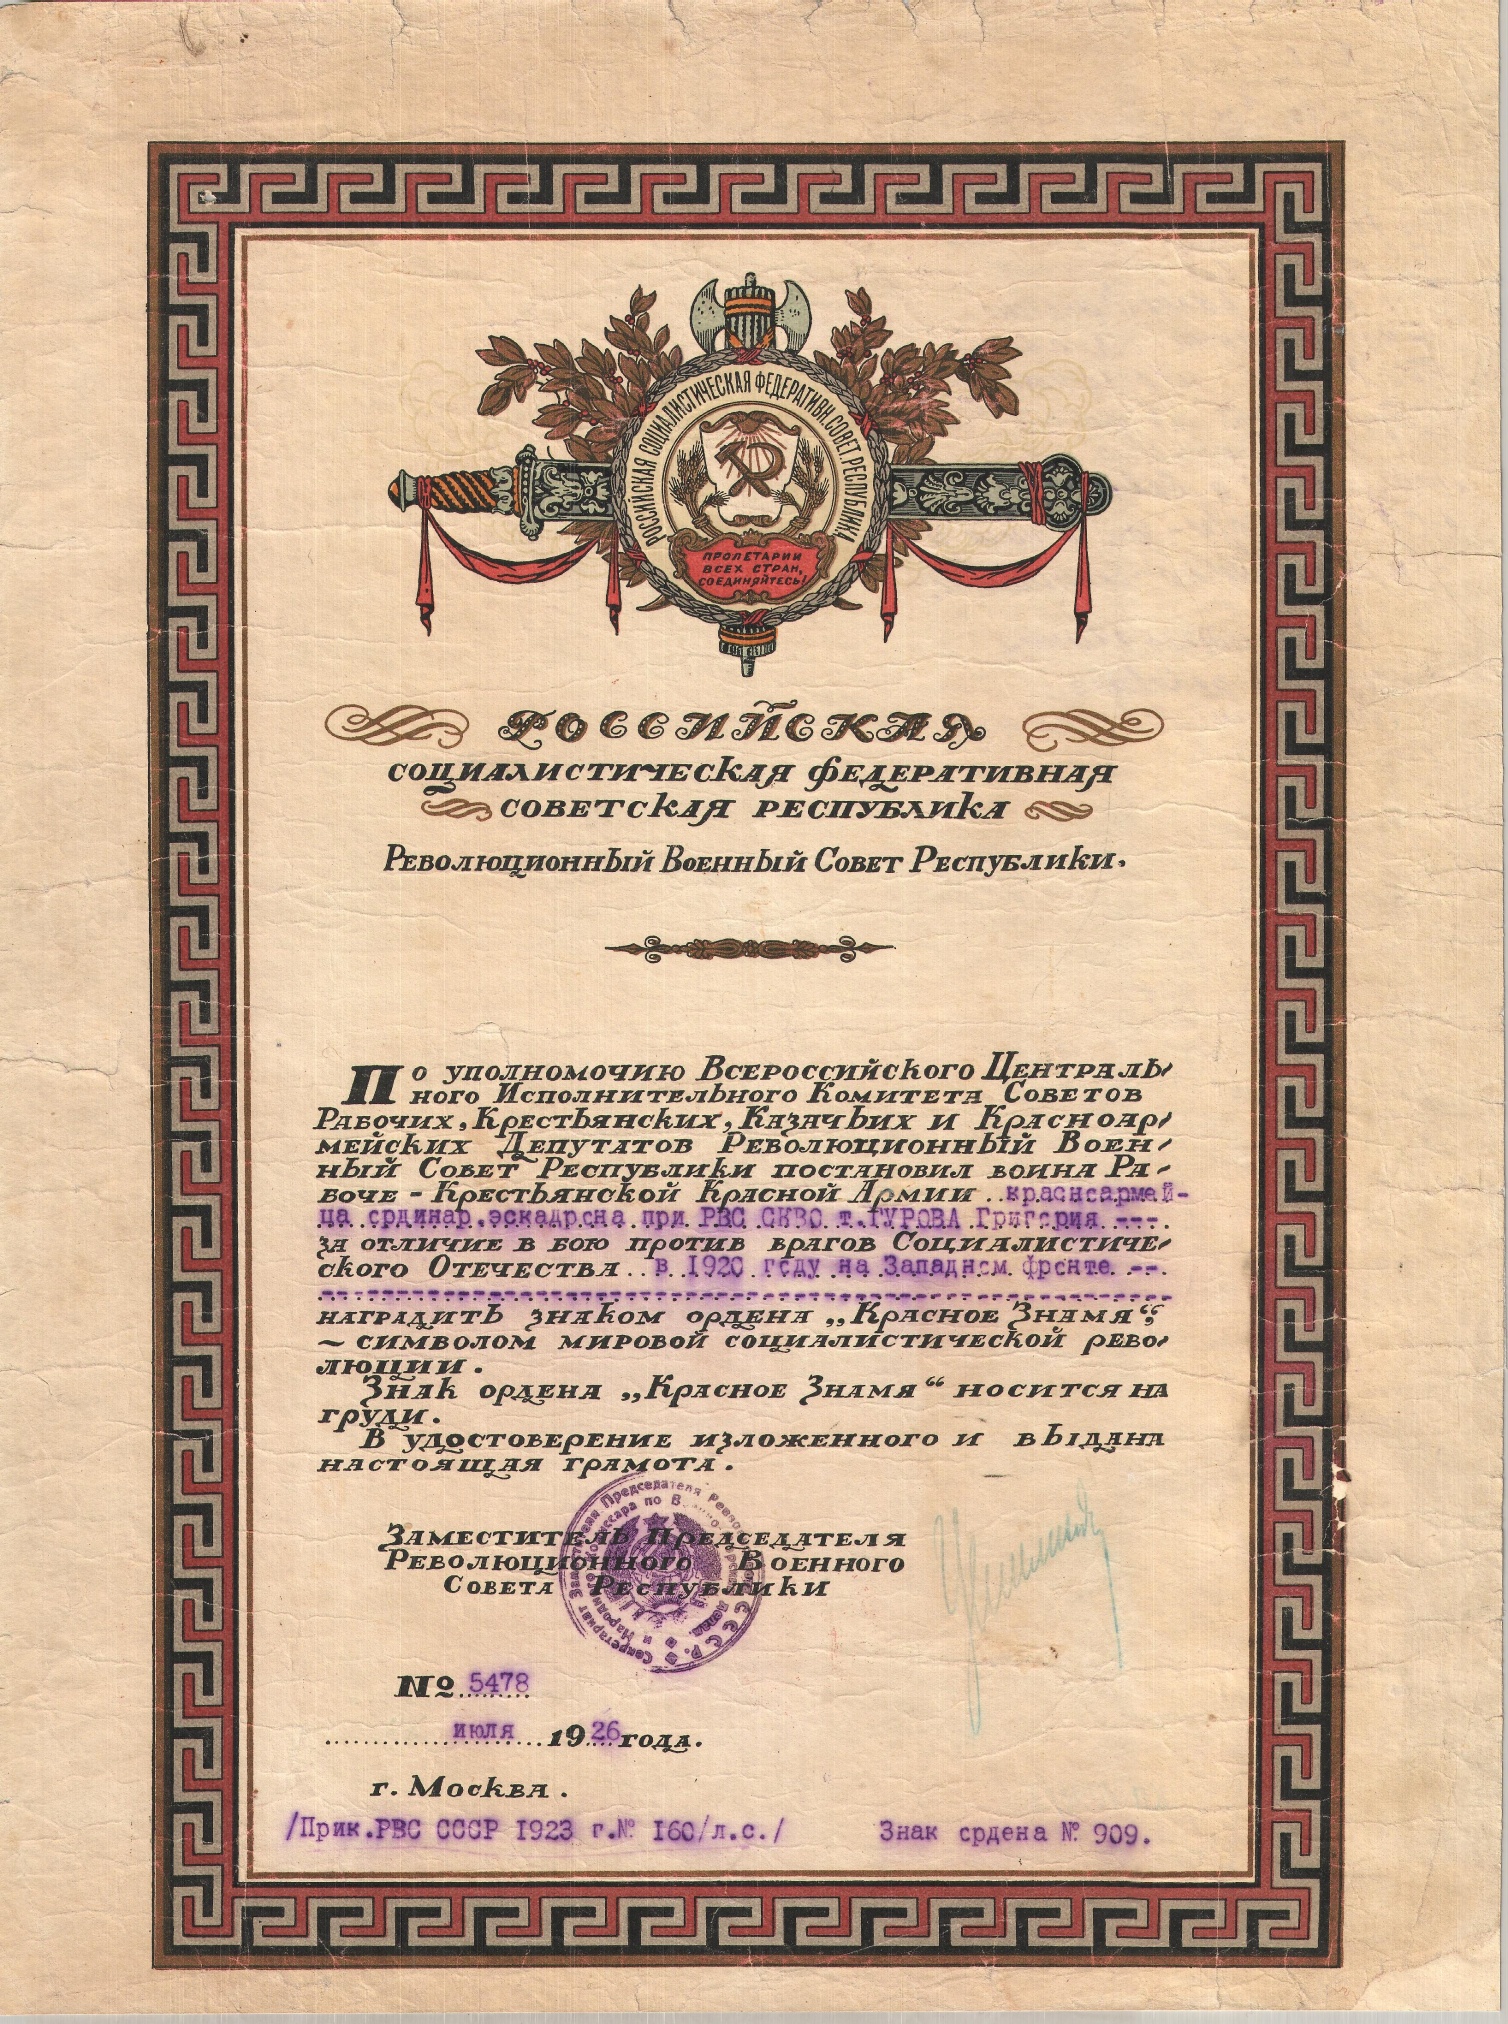 РОССИЙСКАЯ СОЦИАЛИСТИЧЕСКАЯ ФЕДЕРАТИВН. СОВЕТ. РЕСПУБЛИКА
ПРОЛЕТАРИИ
ВСЕХ СТРАН,
СОЕДИНЯЙТЕСЬ!
РОССИЙСКАЯ
СОЦИАЛИСТИЧЕСКАЯ ФЕДЕРАТИВНАЯ
СОВЕТСКАЯ РЕСПУБЛИКА
Революционный Военный Совет Республики.
По уполномочию Всероссийского Централь-
ного Исполнительного Комитета Советов
Рабочих, Крестьянских, Казачьих и Красноар-
мейских Депутатов Революционный Воен-
ный Совет Республики постановил воина Ра-
боче-Крестьянской Красной Армии красноармей-
ца ординар.эскадрона при РВС СКВО т.ГУРОВА Григория ---
за отличие в бою против врагов Социалистиче-
ского Отечества в 1920 году на Западном фронте --
наградить знаком ордена „Красное Знамя“,
- символом мировой социалистической рево-
люции.
Знак ордена „Красное Знамя“ носится на
груди.
В удостоверение изложенного и выдана
настоящая грамота.
Заместитель Председателя
Революционного Военного
Совета Республики
Секретариат Заместителя Председателя С.С.С.Р.
и Народного Комиссара по
№ 5478
июля 1926 года.
г. Москва.
/Прик.РВС СССР 1923 г.№ 160/л.с./ Знак ордена № 909.